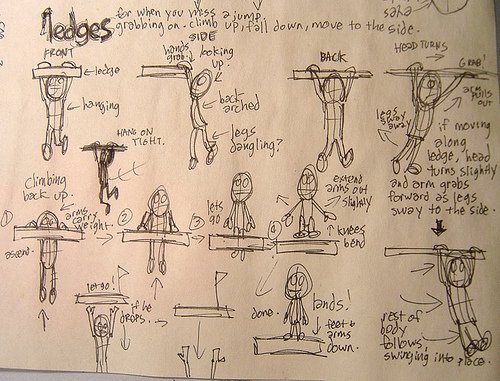 ledges
for when you miss a jump.
grabbing on. climb up, fall down, move to the side.
FRONT
ledge
hanging
SIDE
hands grab.
looking up.
back arched
legs dangling?
BACK
HEAD TURNS
GRAB!
arm pulls out
legs sway away
if moving
along
ledge, head
turns slightly
and arm grabs
forward as legs
sway to the side.
HANG ON
TIGHT.
Climbing
back up.
①
arms
carry
weight.
ascend.
②
③
lets
go
④
extend
arms out
slightly
knees
bend
let go!
if he
drops.
done.
lands!
feet &
arms
down.
rest of
body
follows,
swinging into place.